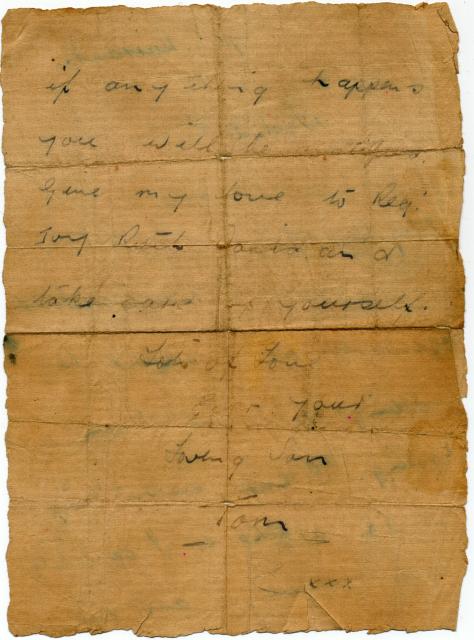 if any thing happens
you will be
Give my love to Reg.
Joy Ruth and
take care of yourself.
Lots of Love
from your
Loving Son
Tom
xxx